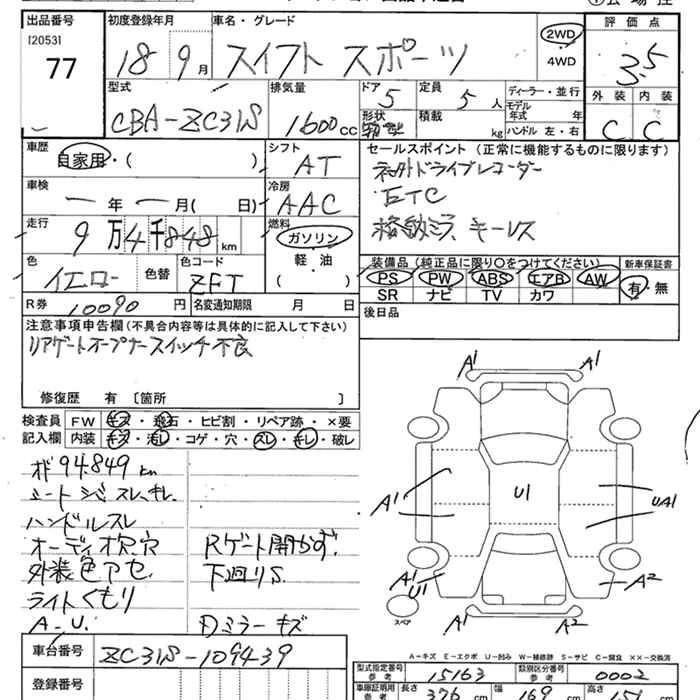 出品番号 初度登録年月 車名・グレード 評価点
[2053]
77 18 9月 スイフト スポーツ 2WD 4WD 3.5
型式 排気量 ドア 定員 ディーラー・並行 外装 内装
CBA-ZC31S 1600cc 5 5人 モデル年式 年 C C
形状 積載 kg ハンドル 左・右
車歴 自家用・( ) シフト AT セールスポイント (正常に機能するものに限ります)
社外ドライブレコーダー
車検 ー年 ー月( 日) 冷房 AAC ETC
格納ミラ、キーレス
走行 9万4千848km 燃料 ガソリン 軽・油 ( )
装備品(純正品に限り○をつけてください) 新車保証書
PS PW ABS エアB AW 有・無
SR ナビ TV カワ
色 イエロー 色替 色コード ZFT
R券 10090円 名変通知期限 月 日 後日品
注意事項申告欄(不具合内容等は具体的に記入して下さい)
リアゲートオープナースイッチ不良
修復歴 有 〔箇所 〕
検査員 FW キズ・飛石・ヒビ割・リペア跡・×要
記入欄 内装 キズ・汚レ・コゲ・穴・スレ・キレ・破レ
94,849km
シートシミ、スレ、キレ
ハンドルスレ
オーディオ穴 Rゲート開かず
外装色アセ 下廻りS
ライトくもり
A-U. Dミラーキズ
A1 A1
A1 U1 UA1
A1 U1 A2
スペア A1 A2
A-キズ E-エクボ U-凹み W-補修跡 S-サビ C-腐食 ××-交換済
車台番号 ZC31S-109439
登録番号
型式指定番号 参考 15163 類別区分番号 参考 0002
車庫証明用 参考 長さ 376cm 幅 169cm 高さ 151cm